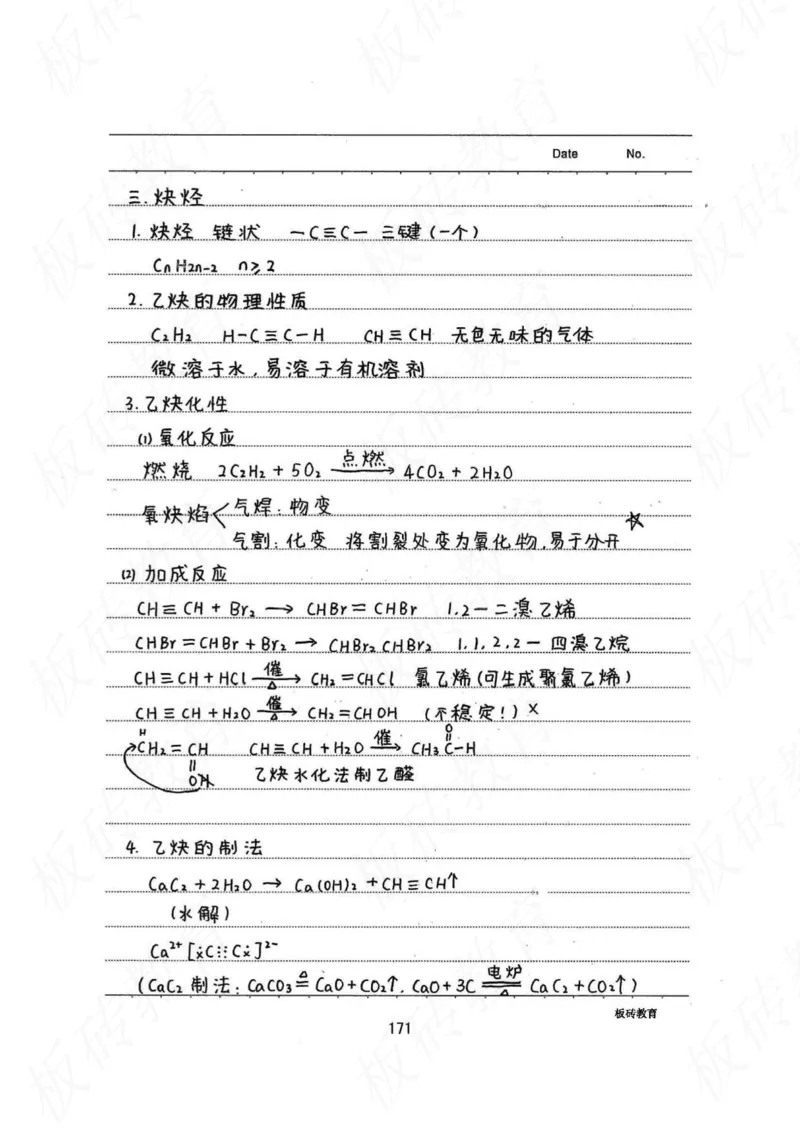 Date No.
三.炔烃
1. 炔烃 链状 —C≡C— 三键(一个)
CnH2n-2 n≥2
2. 乙炔的物理性质
C2H2 H-C≡C-H CH≡CH 无色无味的气体
微溶于水,易溶于有机溶剂
3.乙炔化性
(1) 氧化反应
燃烧 2C2H2 + 5O2 —点燃→ 4CO2 + 2H2O
氧炔焰< 气焊:物变
气割:化变 将割裂处变为氧化物,易于分开 ☆
(2) 加成反应
CH≡CH + Br2 → CHBr=CHBr 1.2-二溴乙烯
CHBr=CHBr + Br2 → CHBr2CHBr2 1.1.2.2-四溴乙烷
CH≡CH + HCl —催/△→ CH2=CHCl 氯乙烯(可生成聚氯乙烯)
CH≡CH + H2O —催/△→ CH2=CHOH (不稳定!) ×
H O
CH2=CH CH≡CH + H2O —催/△→ CH3C-H
OH 乙炔水化法制乙醛
4. 乙炔的制法
CaC2 + 2H2O → Ca(OH)2 + CH≡CH↑
(水解)
Ca2+[:C⫶⫶C:]2-
(CaC2制法: CaCO3 =△= CaO+CO2↑. CaO+3C =电炉/△= CaC2+CO2↑)
板砖教育
171